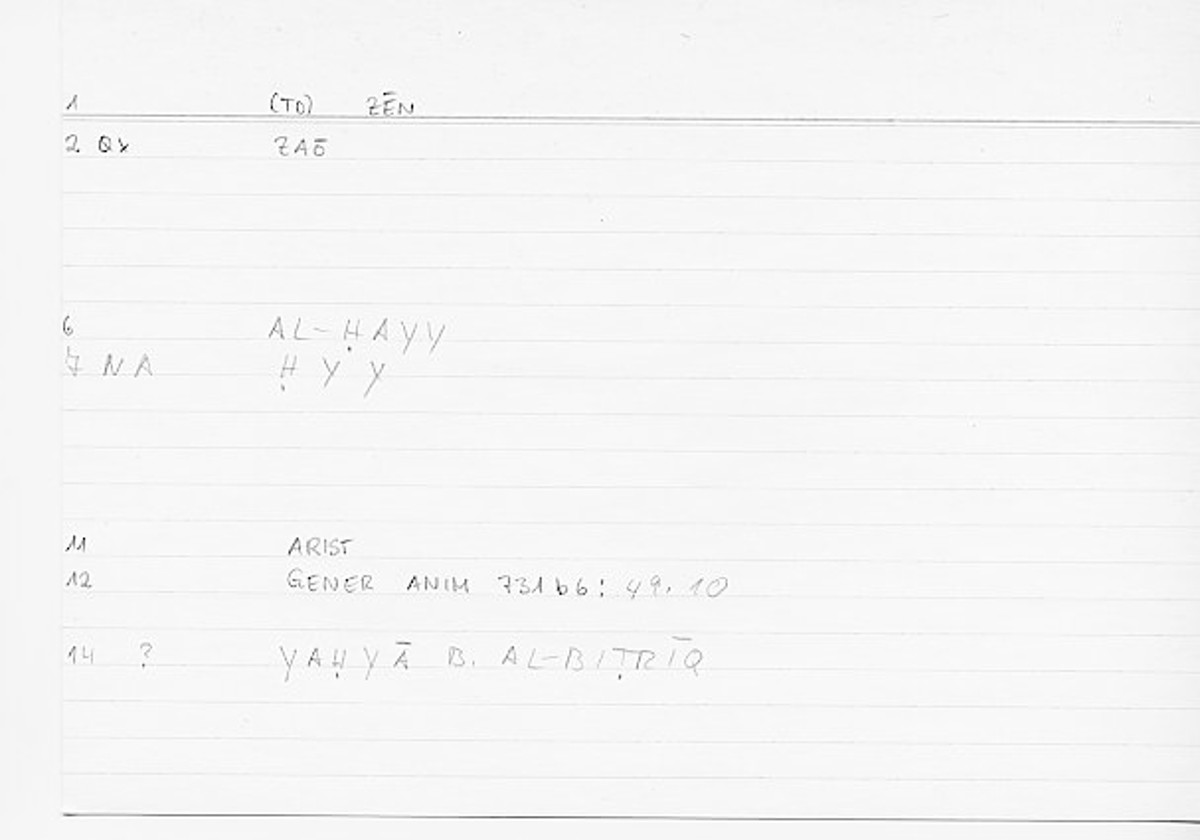 1 (TO) ZĒN
2 Qx ZAŌ
6 AL-ḤAYY
7 NA ḤYY
11 ARIST
12 GENER ANIM 731b6: 49.10
14 ? YAḤYĀ B. AL-BIṬRĪQ